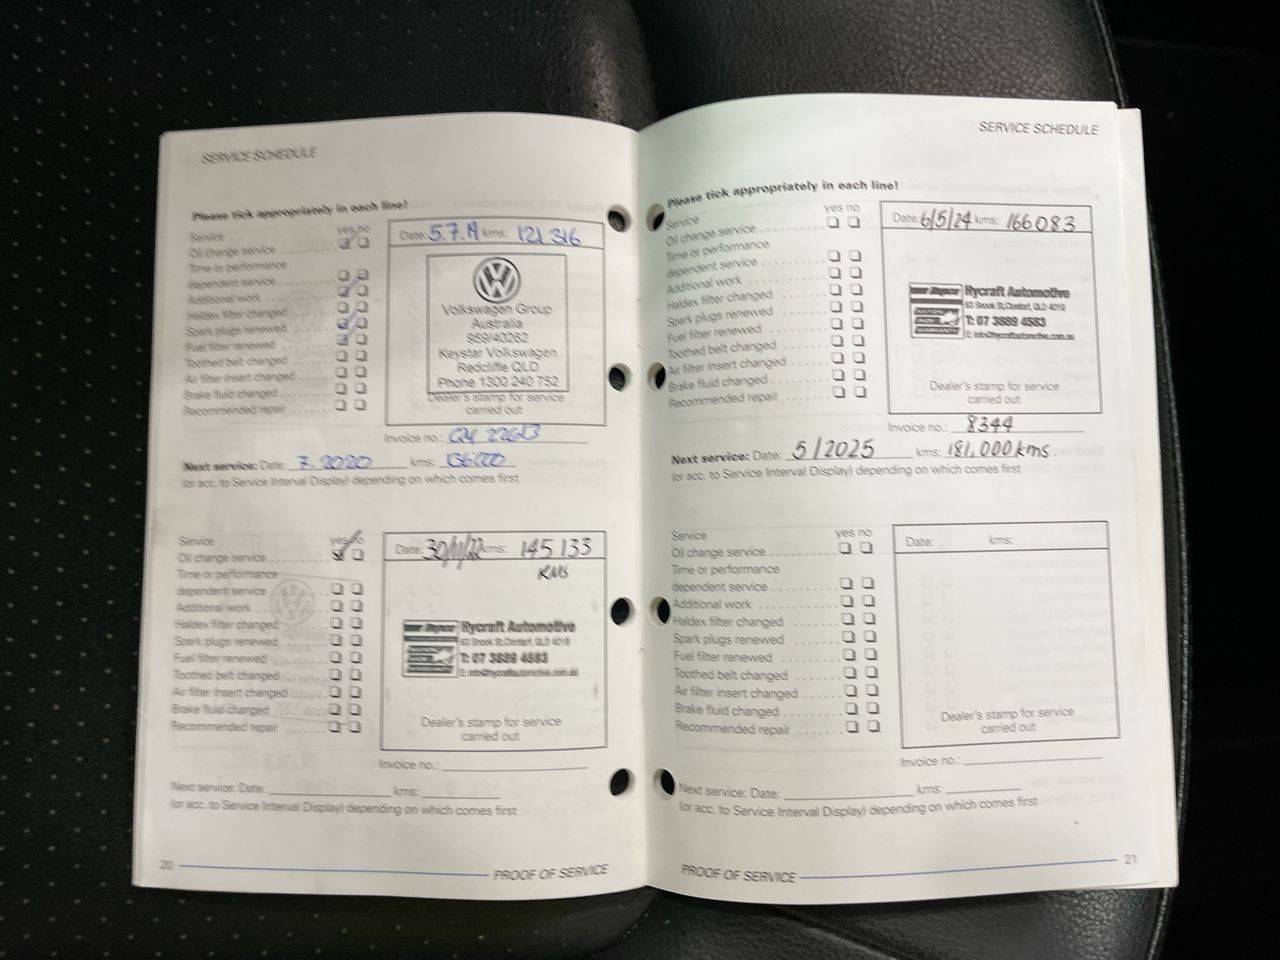 SERVICE SCHEDULE
Please tick appropriately in each line!
Service yes no
Oil change service
Time or performance
dependent service
Additional work
Haldex filter changed
Spark plugs renewed
Fuel filter renewed
Toothed belt changed
Air filter insert changed
Brake fluid changed
Recommended repair
Date: 5.7.19 kms: 121 316
Volkswagen Group
Australia
959/40262
Keystar Volkswagen
Redcliffe QLD
Phone 1300 240 752
Dealer's stamp for service
carried out
Invoice no.:
Next service: Date: 7.2020 kms: 136000
(or acc. to Service Interval Display) depending on which comes first
Service yes no
Oil change service
Time or performance
dependent service
Additional work
Haldex filter changed
Spark plugs renewed
Fuel filter renewed
Toothed belt changed
Air filter insert changed
Brake fluid changed
Recommended repair
Date: 30/11/22 kms: 145 133
KMS
Rycraft Automotive
53 Snook St, Clontarf, QLD 4019
T: 07 3889 4583
E: info@rycraftautomotive.com.au
Dealer's stamp for service
carried out
Invoice no.:
Next service: Date: kms:
(or acc. to Service Interval Display) depending on which comes first
20 PROOF OF SERVICE
SERVICE SCHEDULE
Please tick appropriately in each line!
Service yes no
Oil change service
Time or performance
dependent service
Additional work
Haldex filter changed
Spark plugs renewed
Fuel filter renewed
Toothed belt changed
Air filter insert changed
Brake fluid changed
Recommended repair
Date: 6/5/24 kms: 166083
Rycraft Automotive
53 Snook St, Clontarf, QLD 4019
T: 07 3889 4583
E: info@rycraftautomotive.com.au
Dealer's stamp for service
carried out
Invoice no.: 8344
Next service: Date: 5/2025 kms: 181,000 kms.
(or acc. to Service Interval Display) depending on which comes first
Service yes no
Oil change service
Time or performance
dependent service
Additional work
Haldex filter changed
Spark plugs renewed
Fuel filter renewed
Toothed belt changed
Air filter insert changed
Brake fluid changed
Recommended repair
Date: kms:
Dealer's stamp for service
carried out
Invoice no.:
Next service: Date: kms:
(or acc. to Service Interval Display) depending on which comes first
PROOF OF SERVICE 21